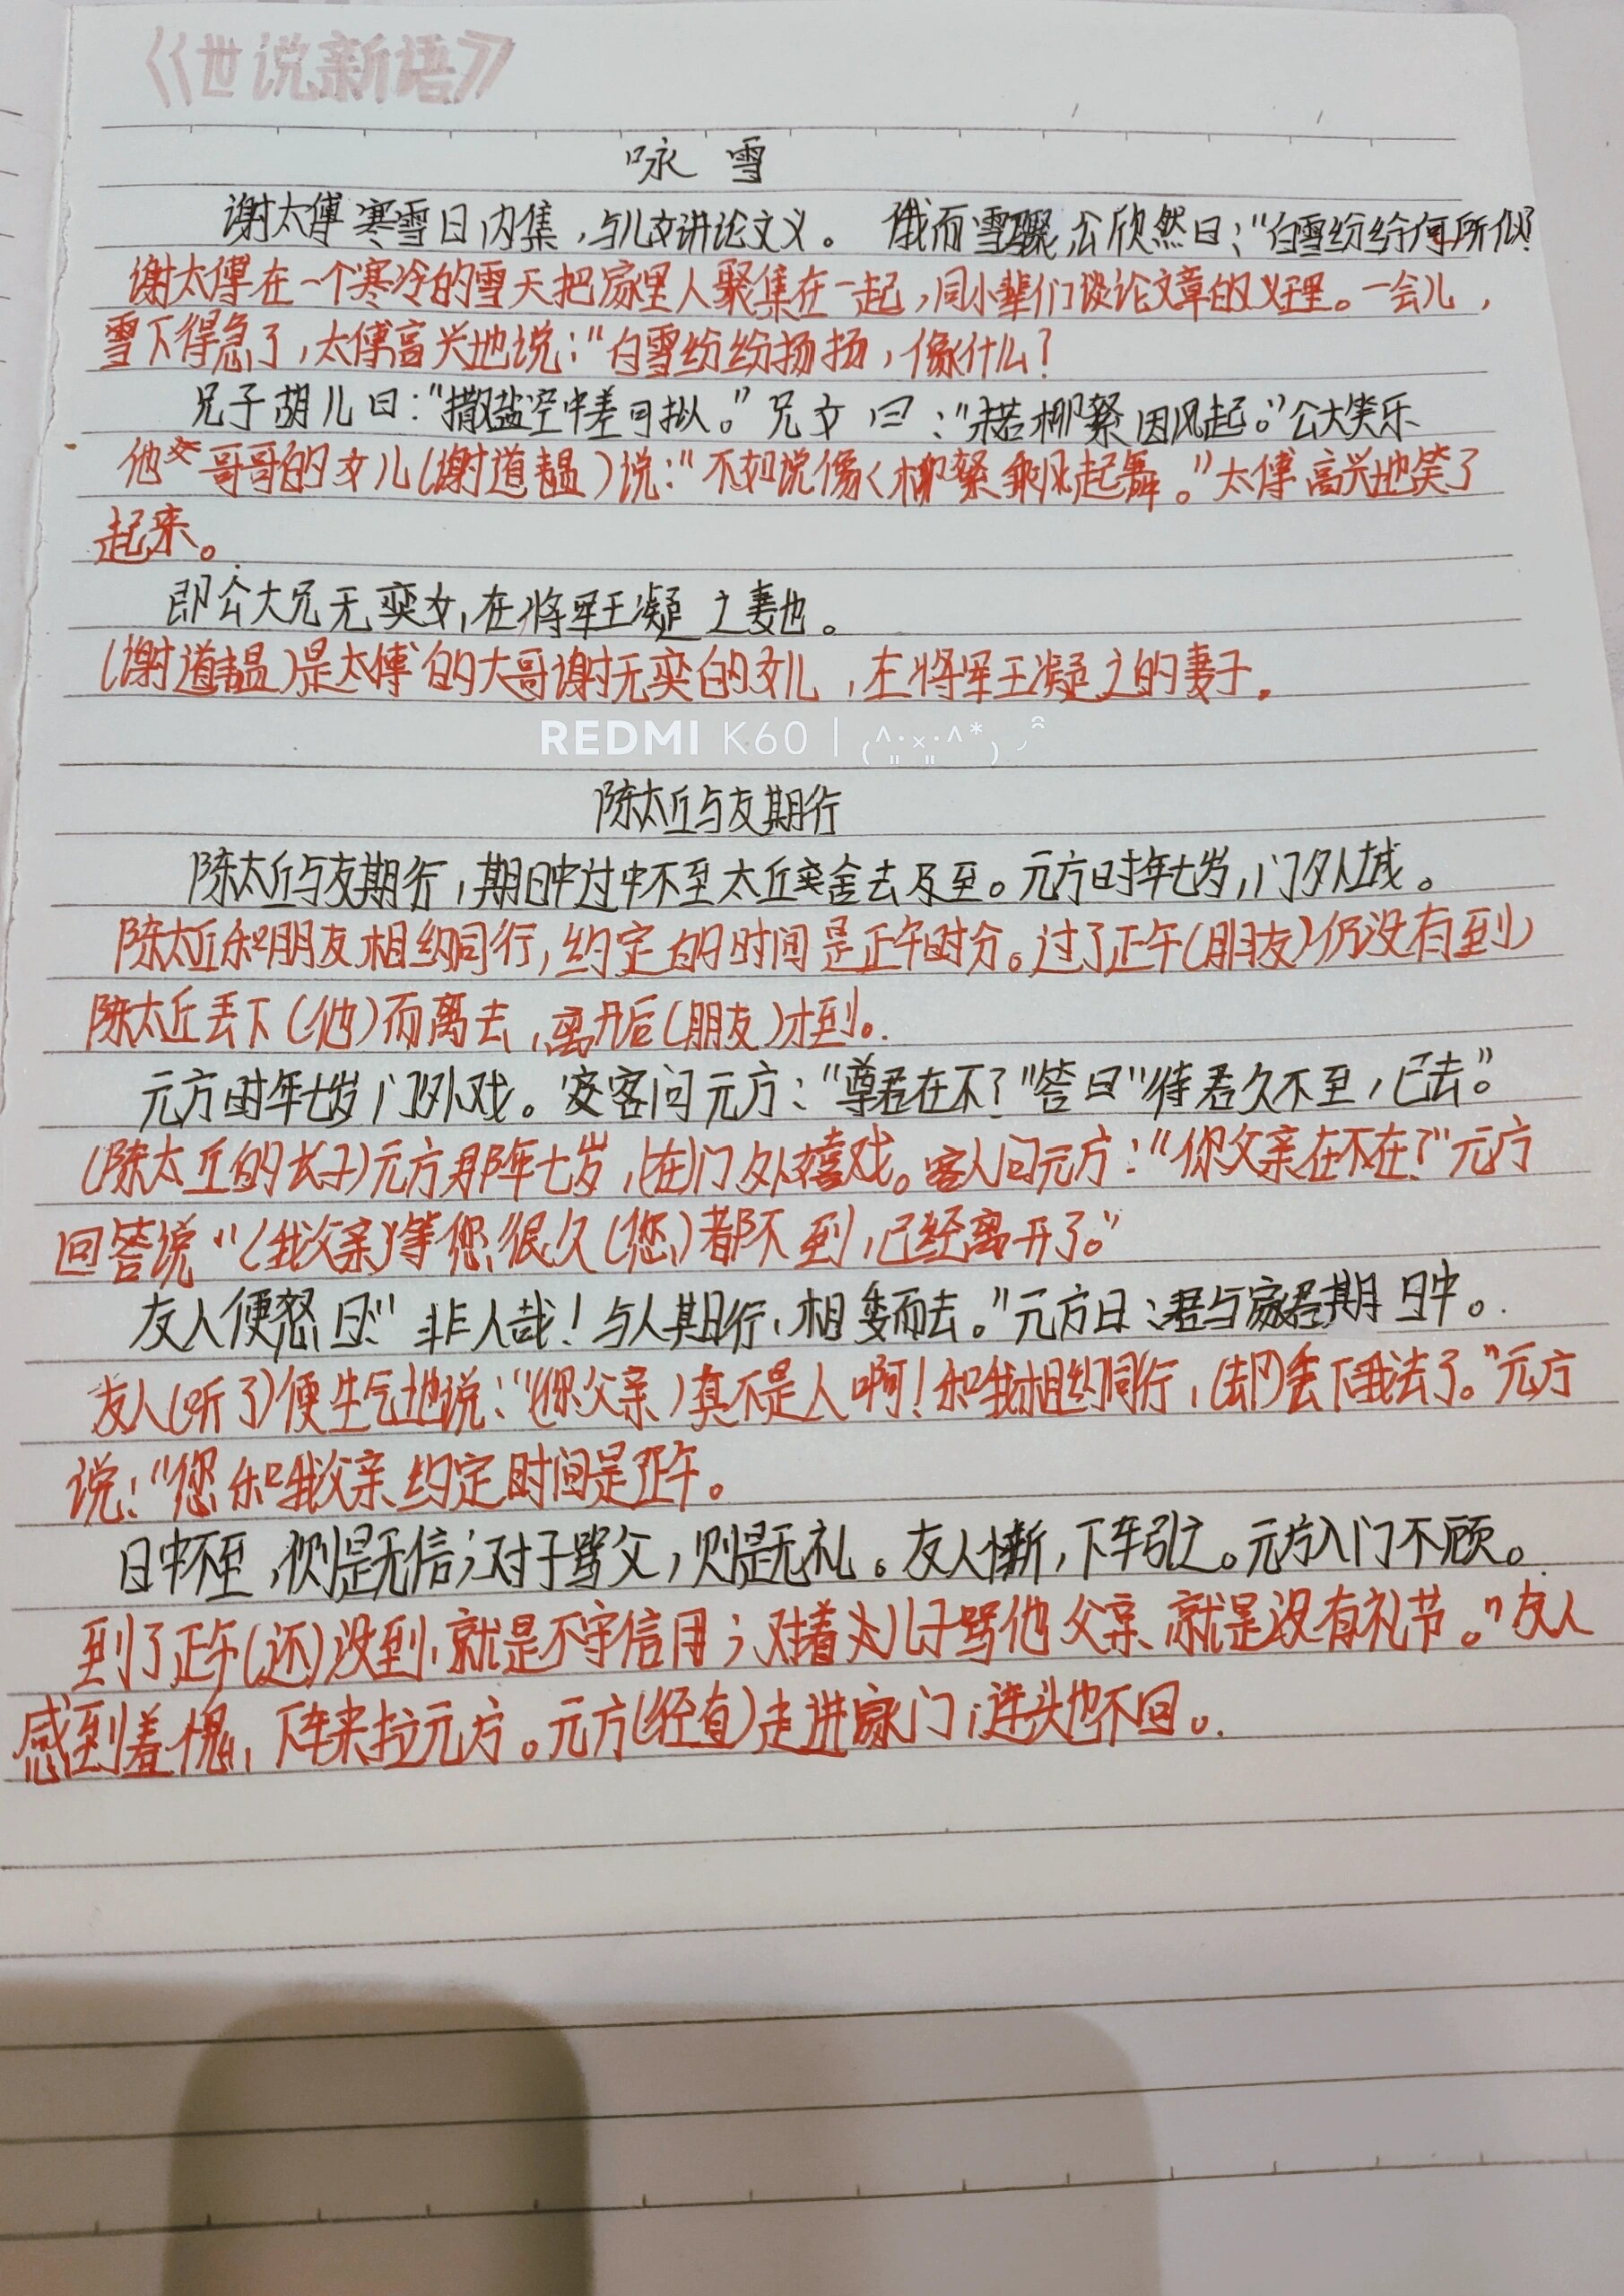 《世说新语》
咏雪
谢太傅寒雪日内集,与儿女讲论文义。 俄而雪骤,公欣然曰:“白雪纷纷何所似?
谢太傅在一个寒冷的雪天把家里人聚集在一起,同小辈们谈论文章的义理。一会儿,
雪下得急了,太傅高兴地说:“白雪纷纷扬扬,像什么?
兄子胡儿曰:“撒盐空中差可拟。”兄女曰:“未若柳絮因风起。”公大笑乐
他哥哥的女儿(谢道韫)说:“不如说像柳絮乘风起舞。”太傅高兴地笑了
起来。
即公大兄无奕女,在将军王凝之妻也。
(谢道韫)是太傅的大哥谢无奕的女儿,左将军王凝之的妻子。
REDMI K60 |
陈太丘与友期行
陈太丘与友期行,期日中过中不至太丘舍去及至。元方时年七岁,门外。
陈太丘和朋友相约同行,约定的时间是正午时分。过了正午(朋友)仍没有到
陈太丘丢下(他)而离去,离开后(朋友)才到。
元方时年七岁门外戏。客问元方:“尊君在不?”答曰“待君久不至,已去。”
(陈太丘的长子)元方那年七岁,(在)门外嬉戏。客人问元方:“你父亲在不在?”元方
回答说“(我父亲)等您很久(您)都不到,已经离开了。”
友人便怒曰:“非人哉!与人期行,相委而去。”元方曰:君与家君期日中。
友人(听了)便生气地说:“(你父亲)真不是人啊!和我相约同行,(却)丢下我去了。”元方
说:“您和我父亲约定时间是正午。
日中不至,则是无信;对子骂父,则是无礼。友人惭,下车引之。元方入门不顾。
到了正午(还)没到,就是不守信用;对着儿子骂他父亲就是没有礼节。”友人
感到羞愧,下车来拉元方。元方(径直)走进家门,连头也不回。